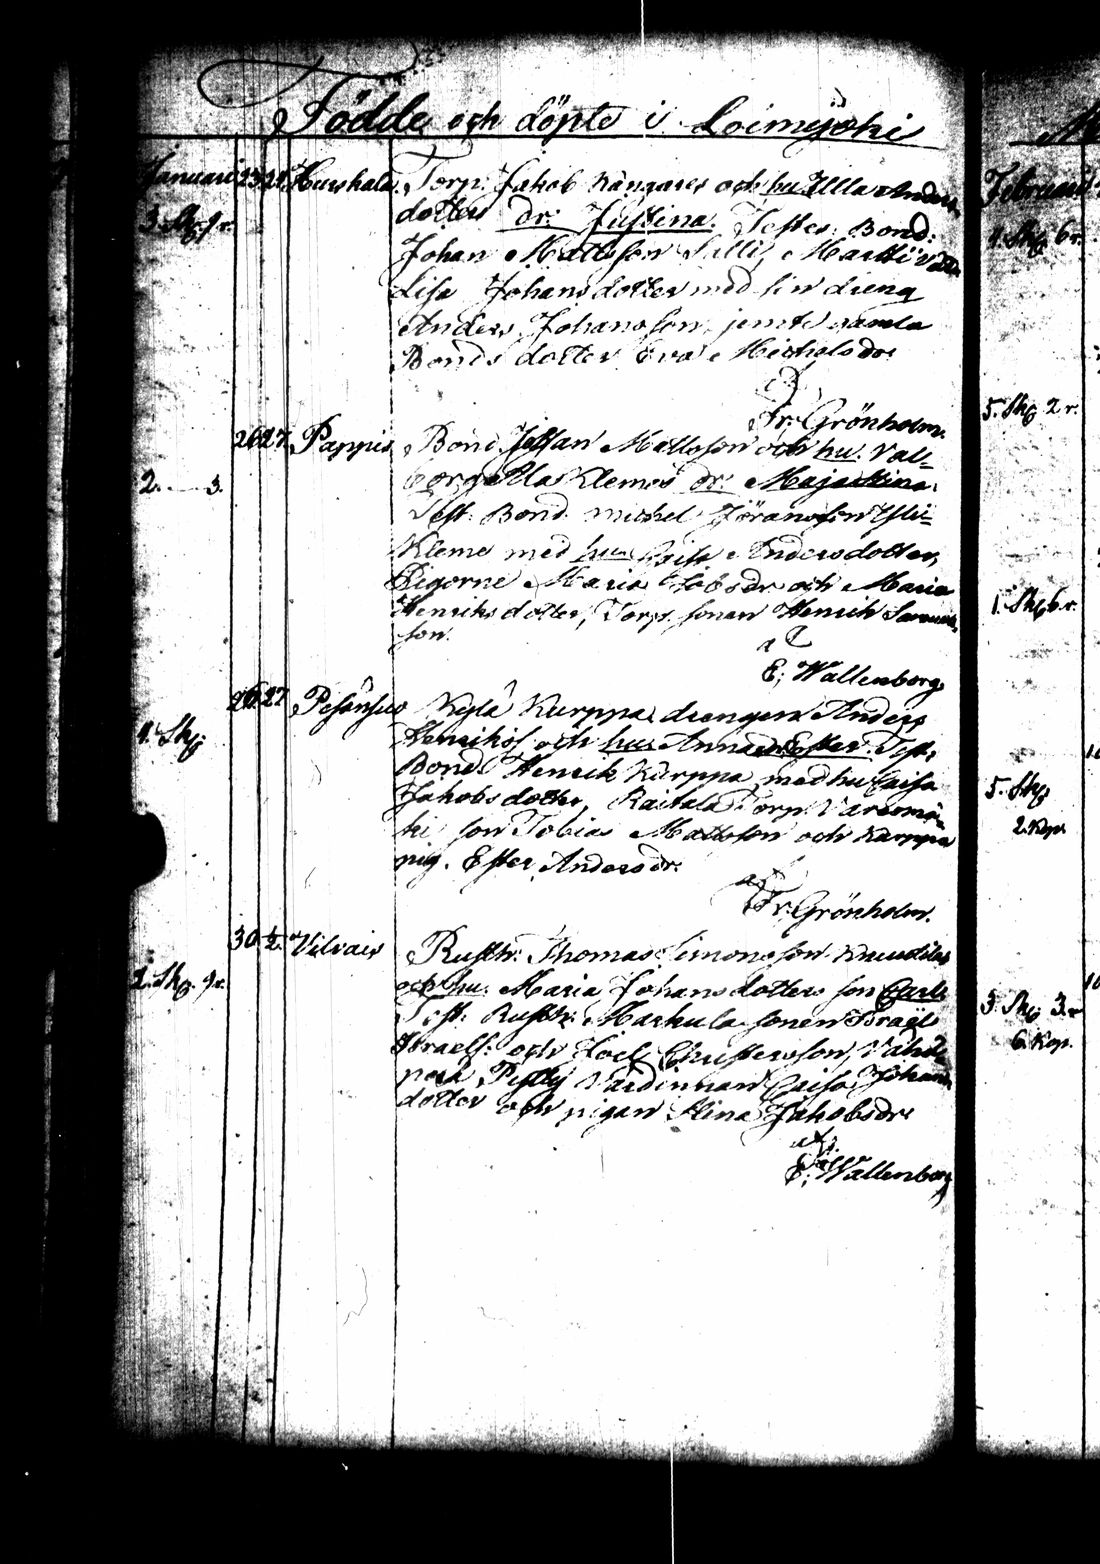 Födde och döpte i Loimijoki
Januari 23 24 Hurskala Torp: Jakob Kångares och hu Ulla Anders
3. Skp 9 r. dotters dr: Justina. Testes: Bond:
Johan Mattsson Silli, Martti
Lisa Johansdotter med sin dreng
Anders Johansson, jemte samla
Bonds dotter Eva Michelsdr
Fr: Grönholm.
26 27 Pappis Bond Johan Mattsson och hu: Val-
2. — 3. borg Ulas Klemos dr: Maja Stina.
Test: Bond michel Jöransson Yli-
Kleme med hu Caisa Andersdotter,
Pigorne Maria Jakobsdr och Maria
Henriksdotter, Torp. sonen Henrik Samuels
son.
E; Wallenborg
26 27 Pesänsuo Kylä Kurppa drengen Anders
4. Skp Henrikss och hu: Annas dr Ester Test:
Bond Henrik Kurppa med hu Caisa
Jakobsdotter, Raitala Torp. Varesmä-
ki son Tobias Mattsson och Kurppa
pig. Ester Andersdr.
af
Fr: Grönholm.
30 ½ Vilvais Rusth: Thomas Simonsson Knuutilas
2. Skp. 9 r. och hu: Maria Johansdotters son Carl
Test: Rusth: Markula sonen Israel
Israels: och Joel Christersson, Vähä-
perä Pylly Värdinnan Caisa Johans
dotter och pigan Stina Jakobsdr
af
E; Wallenborg
Februari
4. Skp 6 r.
5. Skp 2 r.
1. Skp 6 r.
5. Skp
2. Kop
3. Skp 3. r
6. Kop.